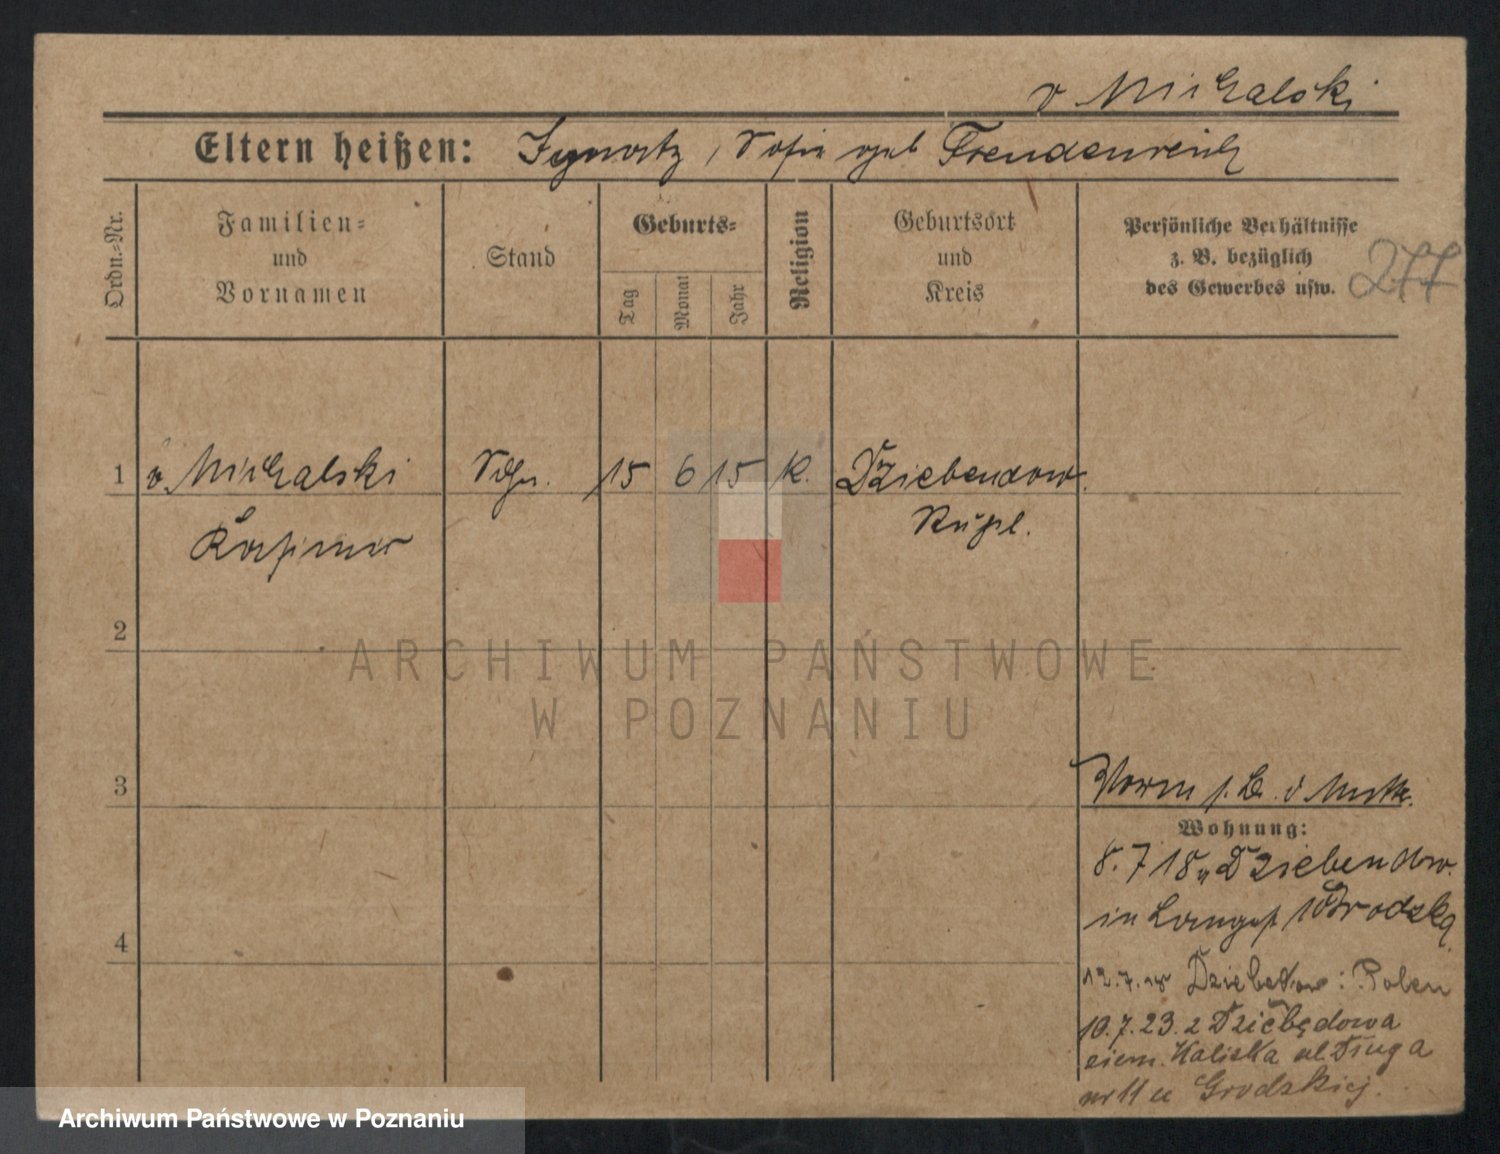 v Michalski
Eltern heißen: Ignatz, Sofia geb Freudenreich
Ordn.-Nr.
Familien-
und
Vornamen
Stand
Geburts-
Tag
Monat
Jahr
Religion
Geburtsort
und
Kreis
Persönliche Verhältnisse
z. B. bezüglich
des Gewerbes usw.
277
1 v. Michalski 15 6 15 K. Dziebendow
Kasimir Rußl.
2
ARCHIWUM PAŃSTWOWE
W POZNANIU
3
Wohnung:
8.7 18 Dziebendow.
in Brodzka
4
12.7.18 : Polen
10.7.23. z Dziebędowa
ziem. Kaliska ul Długa
nr 11 u Grodzkiej.
Archiwum Państwowe w Poznaniu